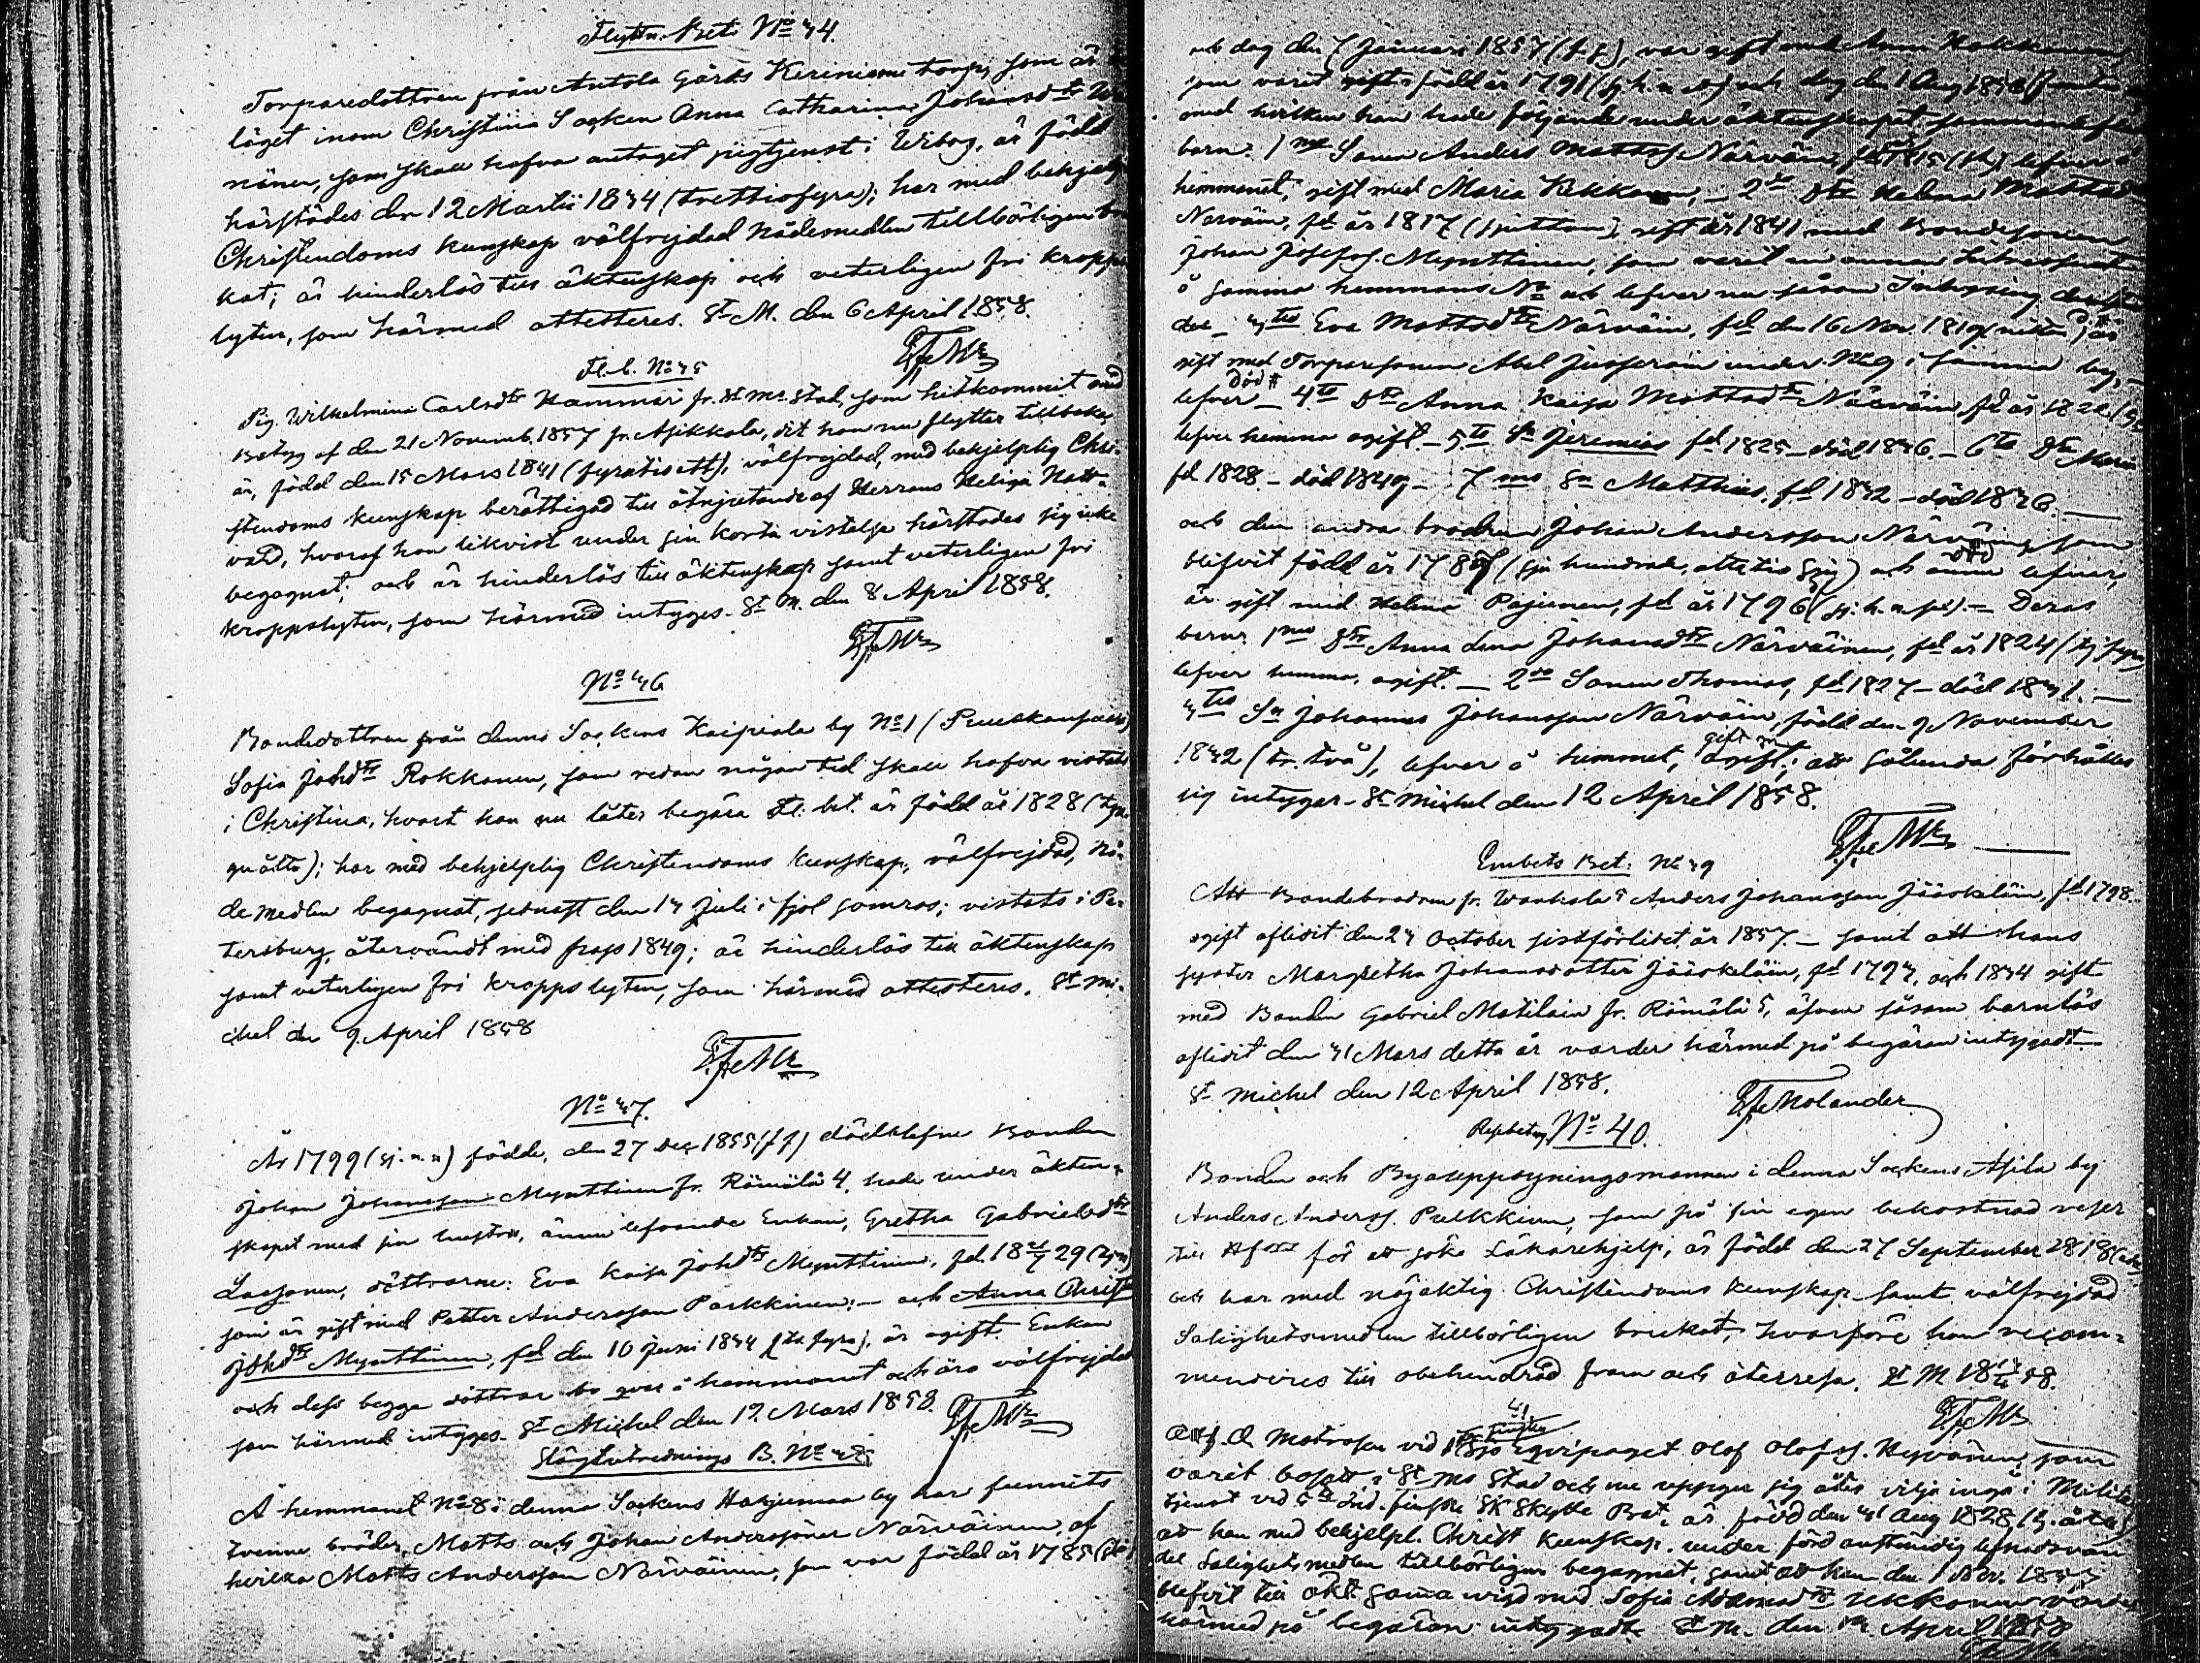 Flyttn. Bet. No 34.
Torparedottren från Antola Gårds Kiriniemi torp, som är
läget inom Christina Socken Anna Catharina Johansdtr
näinen, som skall hafva antaget pigtjenst i Wiborg, är född
härstädes den 12 Martii 1834 (trettiofyra); har med behjelplig
Christendoms kunskap välfrejdad Nådemedlen tillbörligen bru
kat; är hinderlös till äktenskap och veterligen fri kropps
lyten, som härmed attesteras. St M. den 6 April 1858.
Fl. b. No 35
Pig. Wilhelmina Carlsdtr Hammar fr. St Ms. Stad, som hitkommit med
Betyg af den 21 Novemb. 1857 fr. Asikkala, dit hon nu flyttar tillbaka,
är, född den 15 Mars 1841 (fyratioett), välfrejdad, med behjelplig Chri-
stendoms kunskap berättigad till åtnjutande af Herrans Heliga Natt-
vard, hvaraf hon likvist under sin korta vistelse härstädes sig icke
begagnat; och är hinderlös till äktenskap samt veterligen fri
kroppslyten, som härmed intygas. St M. den 8 April 1858.
No 36
Bondedottren från denna Sockens Kaipiala by No 1
Sofia Johdtr Rokkanen, som redan någon tid skall hafva vistats
i Christina, hvart hon nu låter begära Fl. bet. är född år 1828 (tju-
guåtta); har med behjelplig Christendoms kunskap, välfrejdad, Nå-
demedlen begagnat, senast den 13 Juli i fjol somras; vistats i Pe-
tersburg, återvändt med pass 1849; är hinderlös till äktenskap
samt veterligen fri kroppslyten, som härmed attesteras. St Mi-
chel den 9 April 1858
No 37.
År 1799 (sj. n. n) födde, den 27 Dec 1855 (f f) dödblefne Bonden
Johan Johansson Mynttinen fr. Rämälä 4, hade under äkten-
skapet med sin hustru, ännu lefvande Enkan, Gretha Gabrielsdtr
Lassonen, döttrarne: Eva Kaisa Johdtr Mynttinen, fd. 18 29
som är gift med Petter Andersson Parkkinen; – och Anna Christ
Johdtr Mynttinen, fd den 10 Juni 1834 (tr. fyra), är ogift. Enkan
och dess begge döttrar bo qvar å hemmanet och äro välfrejdade
som härmed intygas. St Michel den 12. Mars 1858.
Slägtutrednings B. No 38.
Å hemmanet No 8 i denna Sockens Harjumaa by har funnits
tvenne bröder, Matts och Johan Anderssöner Närväinen, af
hvilka Matts Andersson Närväinen, som var född år 1785
och dog den 7 Januari 1857 (f f), var gift med Anna Kokkonen,
som varit gift, född år 1791 (sj. h. n. e) och dog den 1 Aug
med hvilken han hade följande under äktenskapet sammanaflade
barn: 1mo Sonen Anders Mattss. Närväin, fd 1815 (ft) lefver å
hemmanet, gift med Maria Kekkonen, – 2do Dtr Helena Mattsd
Närväin, fd år 1817 (sjutton), gift år 1841 med Bondesonen
Johan Josefss. Mynttinen, som varit en annan
å samma hemmans No och lefver nu såsom Inhysing
des – 3tio Eva Mattsdtr Närväin, fd den 16 Nov. 1819, är
gift med Torparesonen Abel Jusserain under No 9 i samma by, –
död
lefver – 4to Dtr Anna Kaisa Mattsdtr Närväin fd år 182
lefver hemma ogift – 5to Sn Jeremias fd 1825 – död 1836. – 6to Dtr Maria
fd 1828 – död 1849 – 7mo Sn Matthias, fd 1832 – död 1836. –
och den andra brodren Johan Andersson Närväin, som
död
blifvit född år 1787 (sju hundrade, åttatio sju) och ännu lefver,
är gift med Helena Pajunen, fd år 1796 – Deras
barn: 1mo Dtr Anna Lena Johansdtr Närväinen, fd år 1824
lefver hemma, ogift. – 2do Sonen Thomas, fd 1827 – död 1831. –
3tio Sn Johannes Johansson Närväin, född den 9 November
gift
1832 (tr. två), lefver å hemmet, ogift; att sålunda förhåller
sig intygar – St Michel den 12 April 1858.
Embets Bet: No 39
Att Bondebrodren fr. Wanhala 5 Anders Johansson Jääskeläin, fd 1798.
ogift aflidit den 23 October sistförlidet år 1857. – samt att hans
syster Margretha Johansdotter Jääskeläin, fd 1793, och 1834 gift
med Bonden Gabriel Matilain fr. Rämälä 5, äfven såsom barnlös
aflidit den 31 Mars detta år varder härmed på begäran intygadt.
St Michel den 12 April 1858.
Molander
Resebetyg No 40.
Bonden och Byauppsyningsmannen i denna Sockens Asila by
Anders Anderss. Pulkkinen, som på sin egen bekostnad reser
till Hfors för att söka Läkarehjelp, är född den 27 September 1818
och har med nöjaktig Christendoms kunskap samt välfrejdad
Salighetsmedlen tillbörligen brukat, hvarföre han recom-
menderes till obehindrad fram och återresa. St M 58.
41
Matrosen vid Sjö Eqvipaget Olof Olofss. Hyvönen, som
varit bosatt i St Ms Stad och nu uppger sig åter vilja ingå i Militär
tjenst vid Ind. finska Skytte Bat. är född den 31 Aug 1828
att han med behjelpl. Christ Kunskap. under förd anständig lefnadsvan
del Salighetsmedlen tillbörligen begagnat, samt att han den 1 Nov. 185
blifvit till äkt. sama wigd med Sofia Ukkonen varder
härmed på begäran intygadt. St M. den April 1858